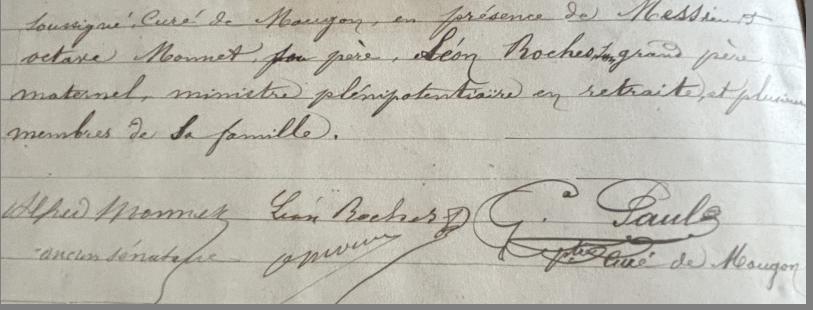 soussigné, Curé de Mougon, en présence de Messieurs
octave Monnet, son père, Léon Roches, son grand père
maternel, ministre plénipotentiaire en retraite, et plusieurs
membres de sa famille.
Alfred Monnet Léon Roches G. Paul
ancien sénateur ptre Curé de Mougon